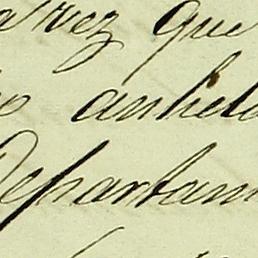 vez que
anhela
Departam